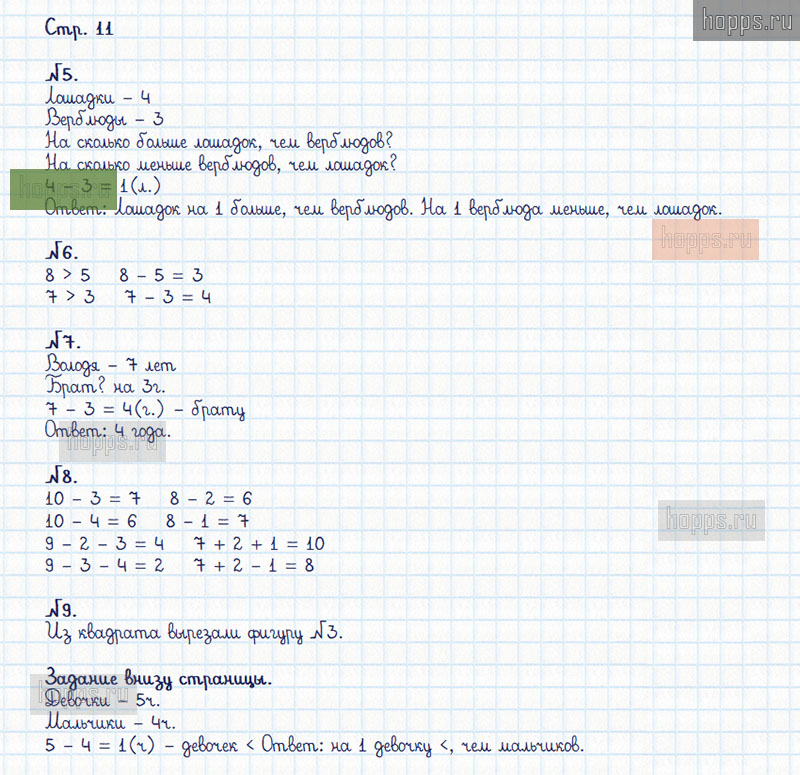 Стр. 11
hopps.ru
№5.
Лошадки - 4
Верблюды - 3
На сколько больше лошадок, чем верблюдов?
На сколько меньше верблюдов, чем лошадок?
4 - 3 = 1(л.)
hopps.ru
Ответ: Лошадок на 1 больше, чем верблюдов. На 1 верблюда меньше, чем лошадок.
hopps.ru
№6.
8 > 5 8 - 5 = 3
7 > 3 7 - 3 = 4
№7.
Володя - 7 лет
Брат? на 3г.
7 - 3 = 4(г.) - брату
Ответ: 4 года.
hopps.ru
№8.
10 - 3 = 7 8 - 2 = 6
10 - 4 = 6 8 - 1 = 7
hopps.ru
9 - 2 - 3 = 4 7 + 2 + 1 = 10
9 - 3 - 4 = 2 7 + 2 - 1 = 8
№9.
Из квадрата вырезали фигуру №3.
Задание внизу страницы.
hopps.ru
Девочки - 5ч.
Мальчики - 4ч.
5 - 4 = 1(ч) - девочек < Ответ: на 1 девочку <, чем мальчиков.